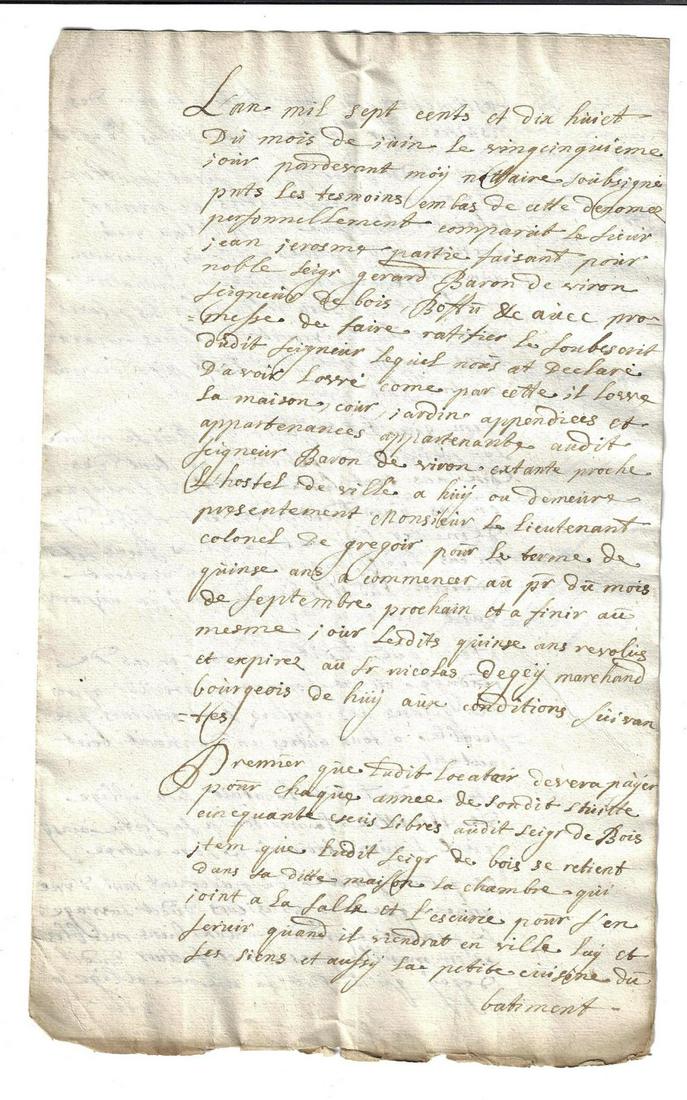 L'an mil sept cents et dix huict
Du mois de juin le vingcinquieme
jour pardevant moÿ nottaire soubsigné
pnts les tesmoins embas de cette denomez
personnellement comparut le sieur
jean jerosme partie faisant pour
noble seigr gerard Baron de viron
seigneur de bois, Boffu &c avec pro=
=messe de faire ratifier le soubescrit
dudit seigneur lequel nous at Declaré
D'avoir Lovvé come par cette il Lovve
La maison, cour, jardin appendices et
appartenances appartenante audit
seigneur Baron de viron extante proche
L'hostel de ville a huÿ ou demeure
presentement Monsieur Le lieutenant
colonel De gregoir pour le terme de
quinse ans a commencer au pr du mois
de septembre prochain et a finir au
mesme jour lesdits quinse ans revolus
et expirez au Sr nicolas Degeÿ marchand
bourgeois de huÿ aux conditions suivan
=tes
Premier que Ludit Locatair devera paÿer
pour chaque année de sondit stuitte
cincquante escus libres audit seigr de Bois
jtem que Ludit seigr de bois se retient
dans sa ditte maison La chambre qui
joint a La salle et L'escurie pour s'en
servir quand il viendrat en ville Luy et
Les siens et aussÿ La petite cuisine du
batiment